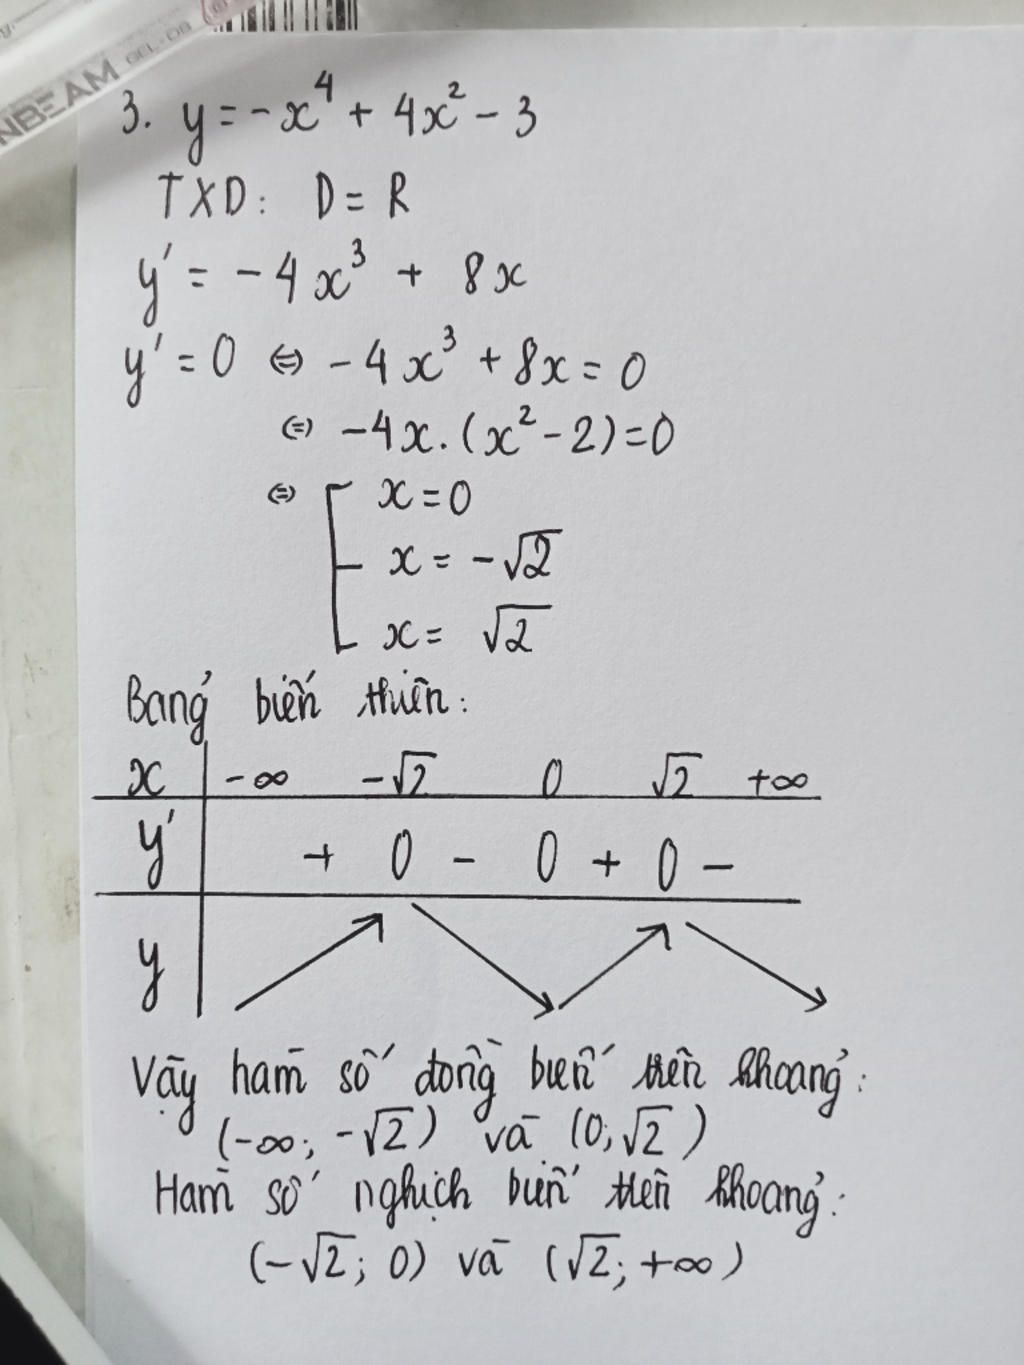 NBEAM GEL-DB
3. y = -x⁴ + 4x² - 3
TXD: D = R
y' = -4x³ + 8x
y' = 0 ⇔ -4x³ + 8x = 0
⇔ -4x.(x² - 2) = 0
⇔ [ x = 0
x = -√2
x = √2
Bảng biến thiên:
x | -∞ -√2 0 √2 +∞
y' | + 0 - 0 + 0 -
y
Vậy hàm số đồng biến trên khoảng:
(-∞; -√2) và (0; √2)
Hàm số nghịch biến trên khoảng:
(-√2; 0) và (√2; +∞)